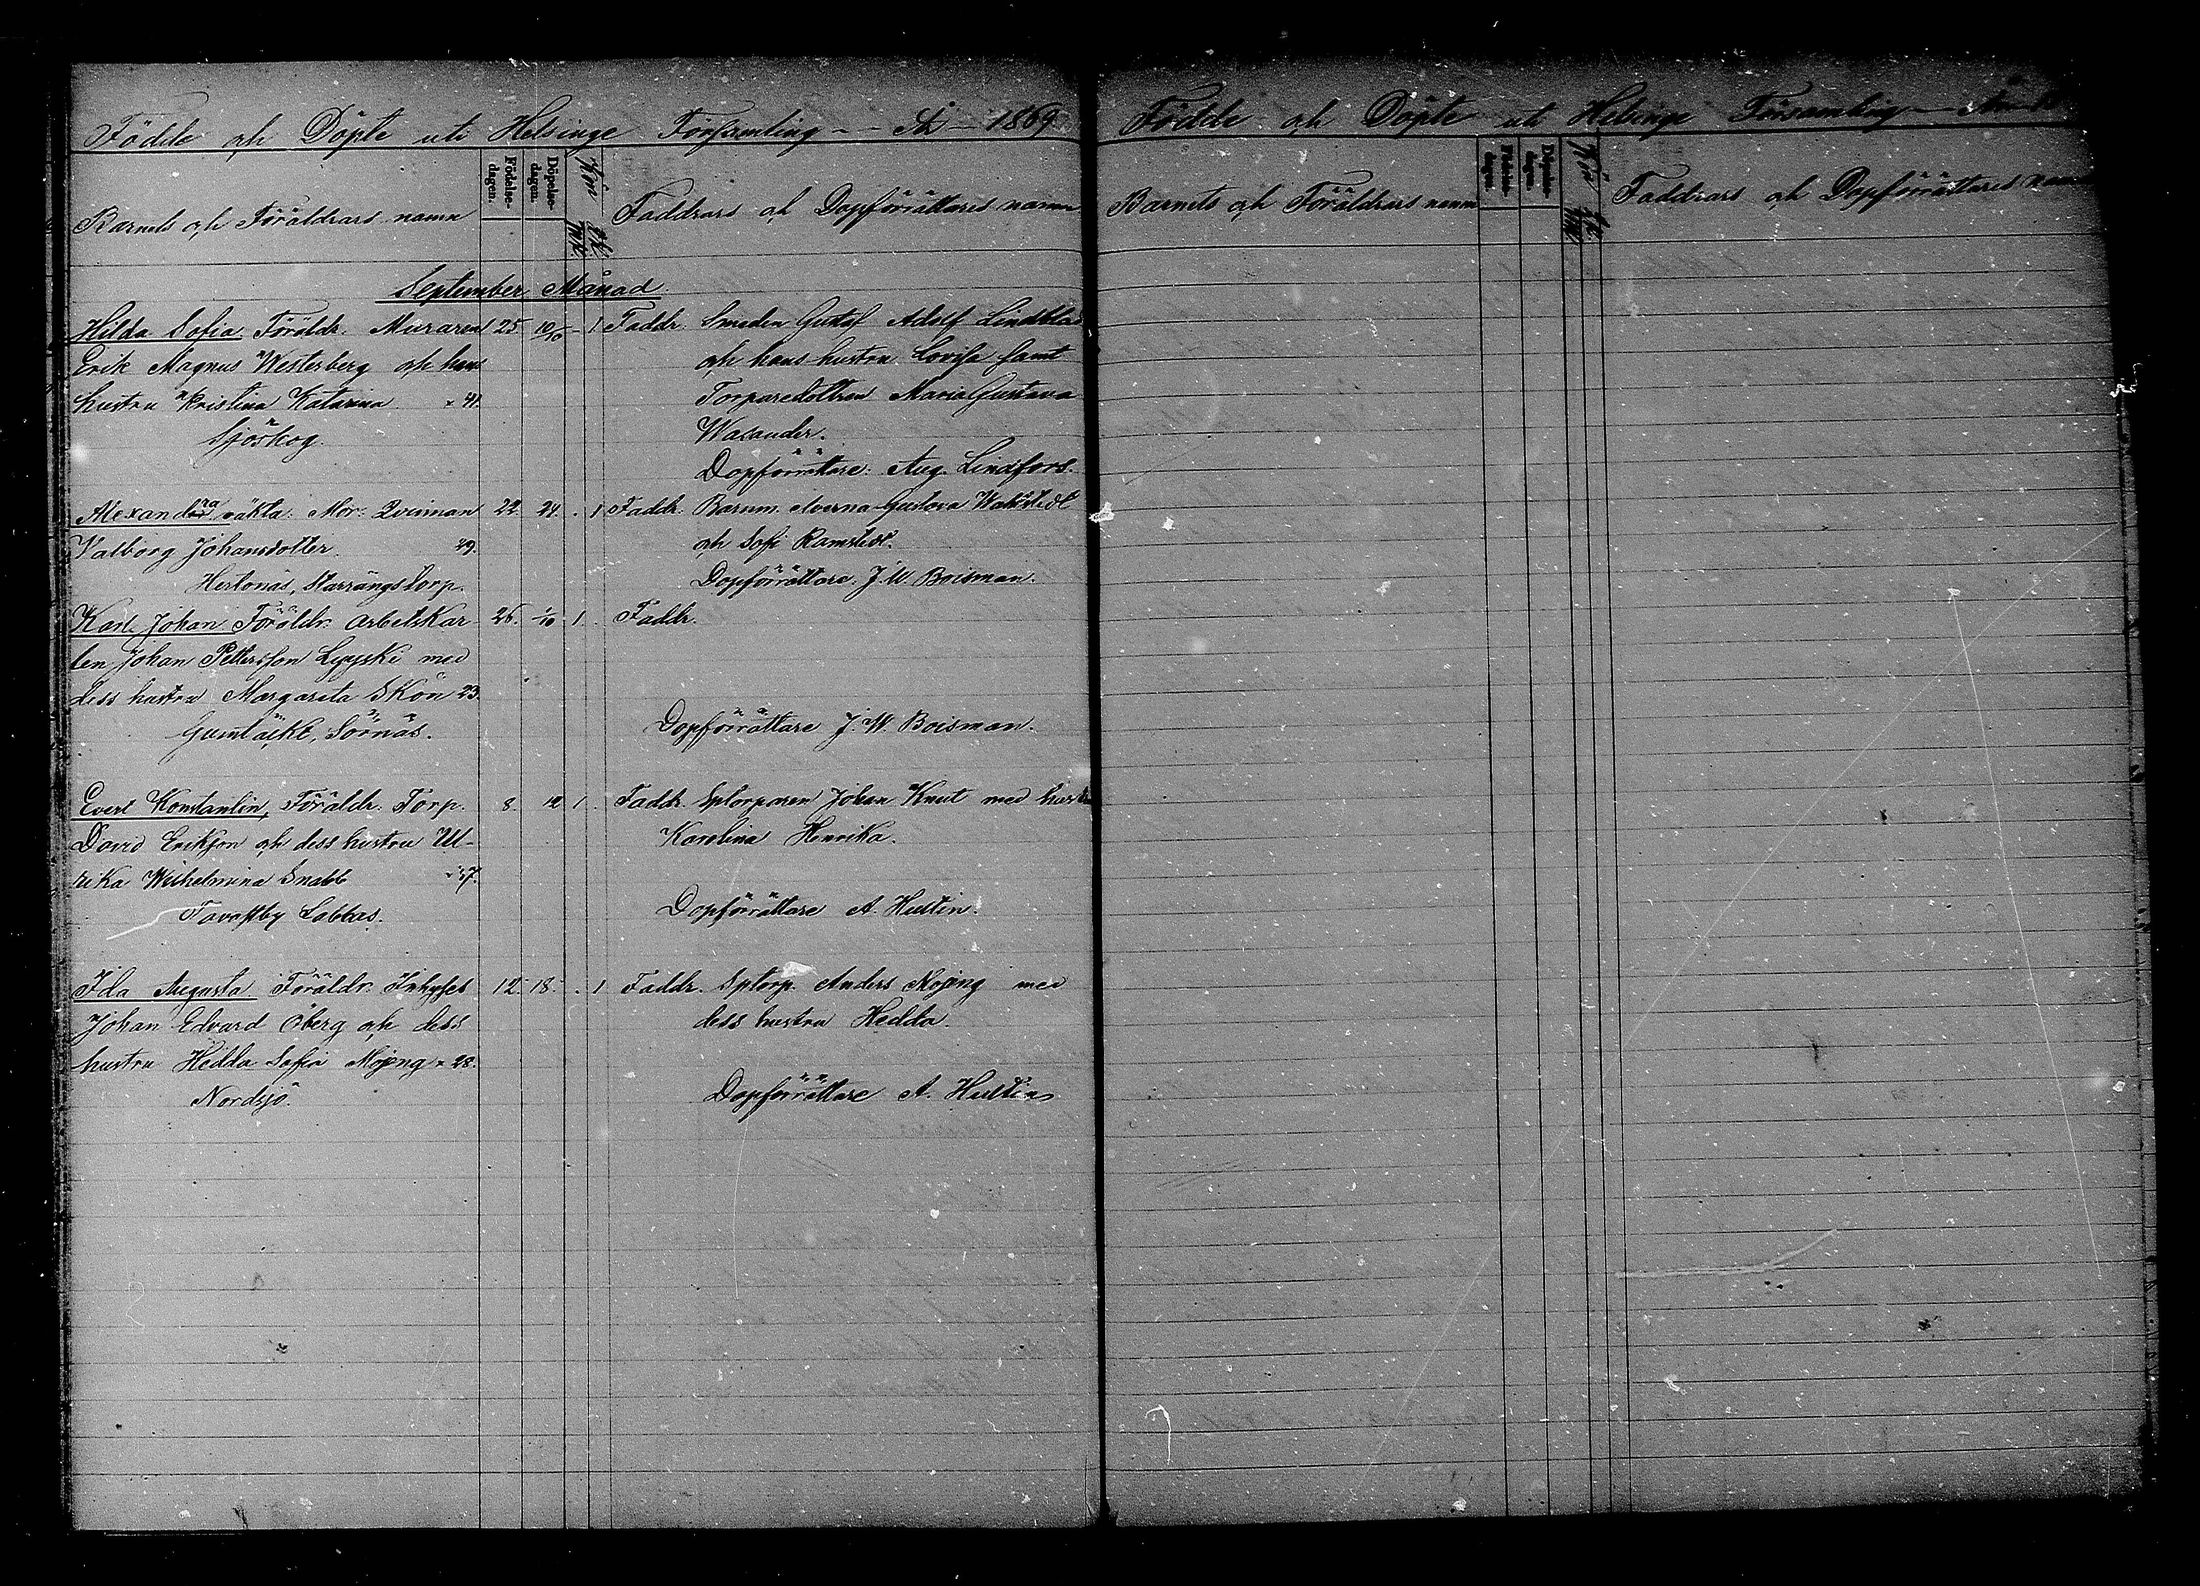 Födde och Döpte uti Helsinge Församling - - År - 1869
Barnets och Föräldrars namn
Födelse-dagen.
Döpelse-dagen.
Kön
mk
qk
Faddrars och Dopförrättares namn
September Månad
Hilda Sofia. Föräldr. Muraren 25 10/10 - 1 Faddr. Smeden Gustaf Adolf Lindblad
Erik Magnus Westerberg och hans och hans hustru Lovisa samt
hustru Kristina Katarina 41. Torparedottren Maria Gustava
Sjöskog. Wasander.
Dopförrättare: Aug. Lindfors.
Alexandra oäkta. Mor: Qvinnan 22 24 . 1 Faddr. Barnm. Gustava
Valborg Johansdotter. 29. och Sofi Ramstedt.
Hertonäs, Starrängstorp. Dopförrättare. J. W. Boisman.
Karl Johan Föräldr. Arbetskar 26. 1/10 1 . Faddr.
len Johan Pettersson Lyyski med
dess hustru Margareta Skön 23.
Gumtäckt, Sörnäs. Dopförrättare J. W. Boisman.
Evert Konstantin, Föräldr. Torp. 8. 12 1 . Faddr. Sptorparen Johan Knut med hustru
David Eriksson och dess hustru Ul- Karolina Henrika.
rika Wilhelmina Snabb 37.
Tavastby Labbas. Dopförrättare A. Hustin.
Ida Augusta. Föräldr. Inhyses 12 18 . 1 Faddr. Sptorp. Anders med
Johan Edvard Öberg och dess dess hustru Hedda.
hustru Hedda Sofia 28.
Nordsjö. Dopförrättare A. Hustin
Födde och Döpte uti Helsinge Församling
Barnets och Föräldrars namn
Födelse-dagen.
Döpelse-dagen.
Kön
mk
qk
Faddrars och Dopförrättares namn